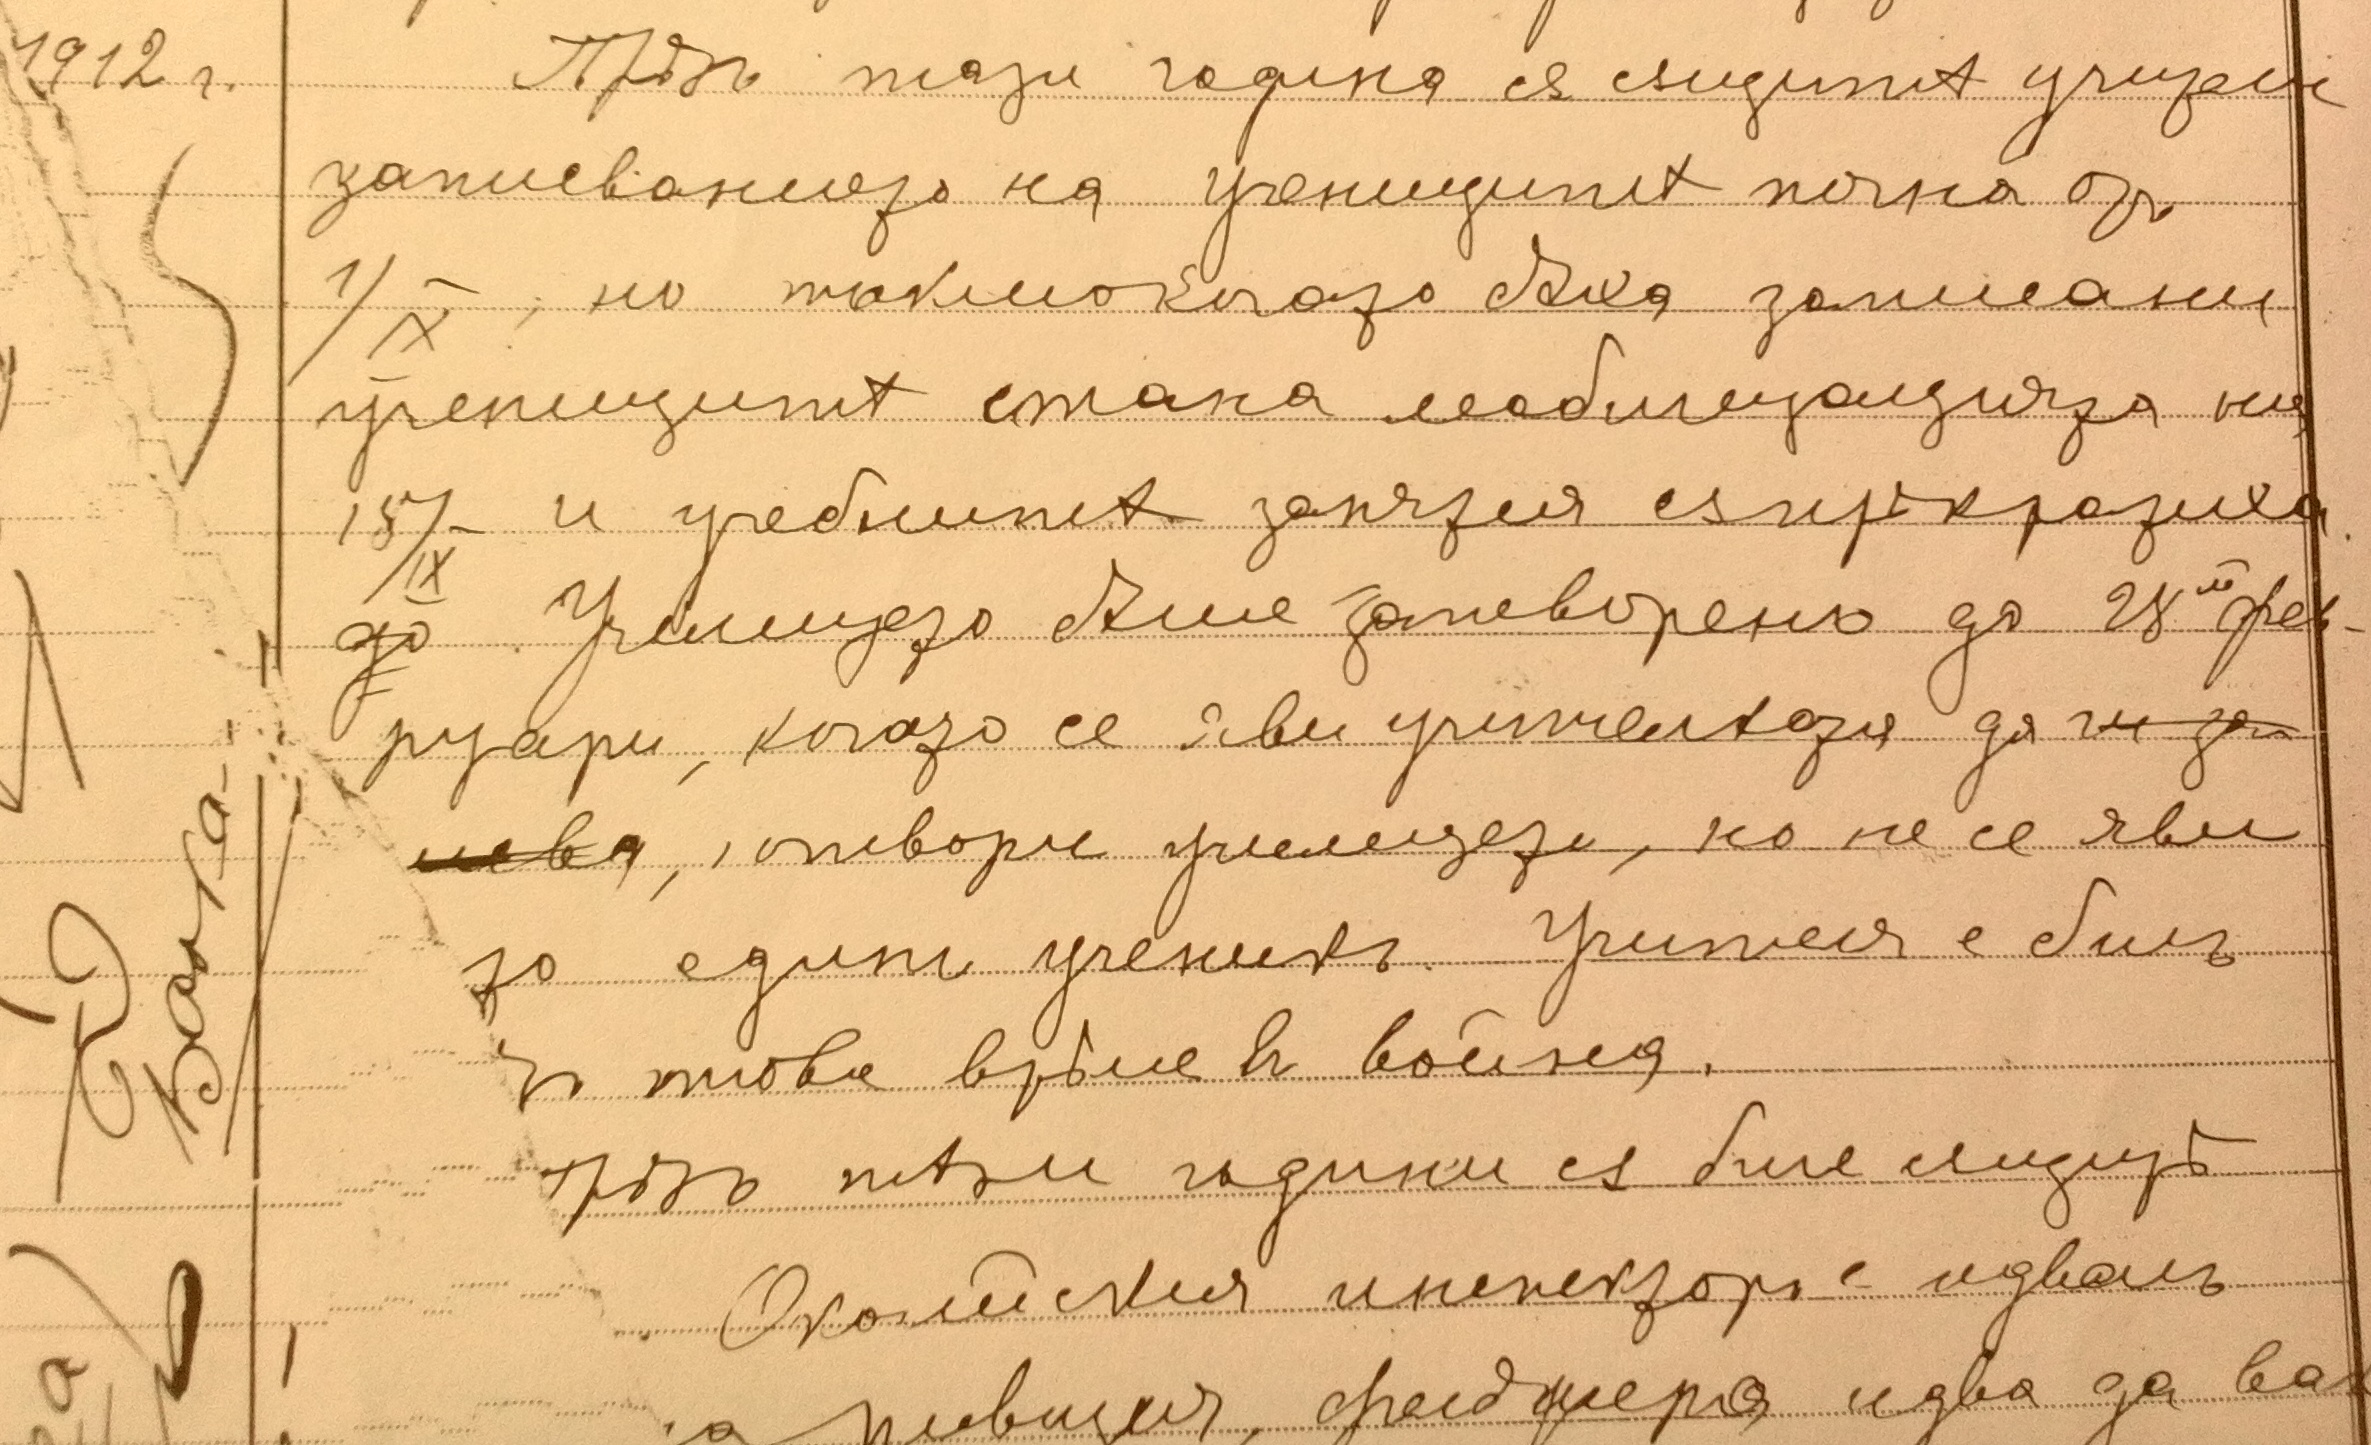 1912 г.
Прѣзъ тази година сѫ сѫщитѣ учители
записванието на ученицитѣ почна отъ
1/IX, но тъкмо когато бѣха записани
ученицитѣ стана мобилизацията на
15/IX и учебнитѣ занятия сѫ прѣкратиха.
до Училището бѣше затворено до 28й фев-
руари, когато се яви учителката да
, отвори училището, но не се яви
то единъ ученикъ. Учителя е билъ
въ това врѣме въ война.
Прѣзъ тѣзи години сѫ биле сѫщитѣ
Околийския инспекторъ е идвалъ
на ревизия, фелдшера идва да
Бака-